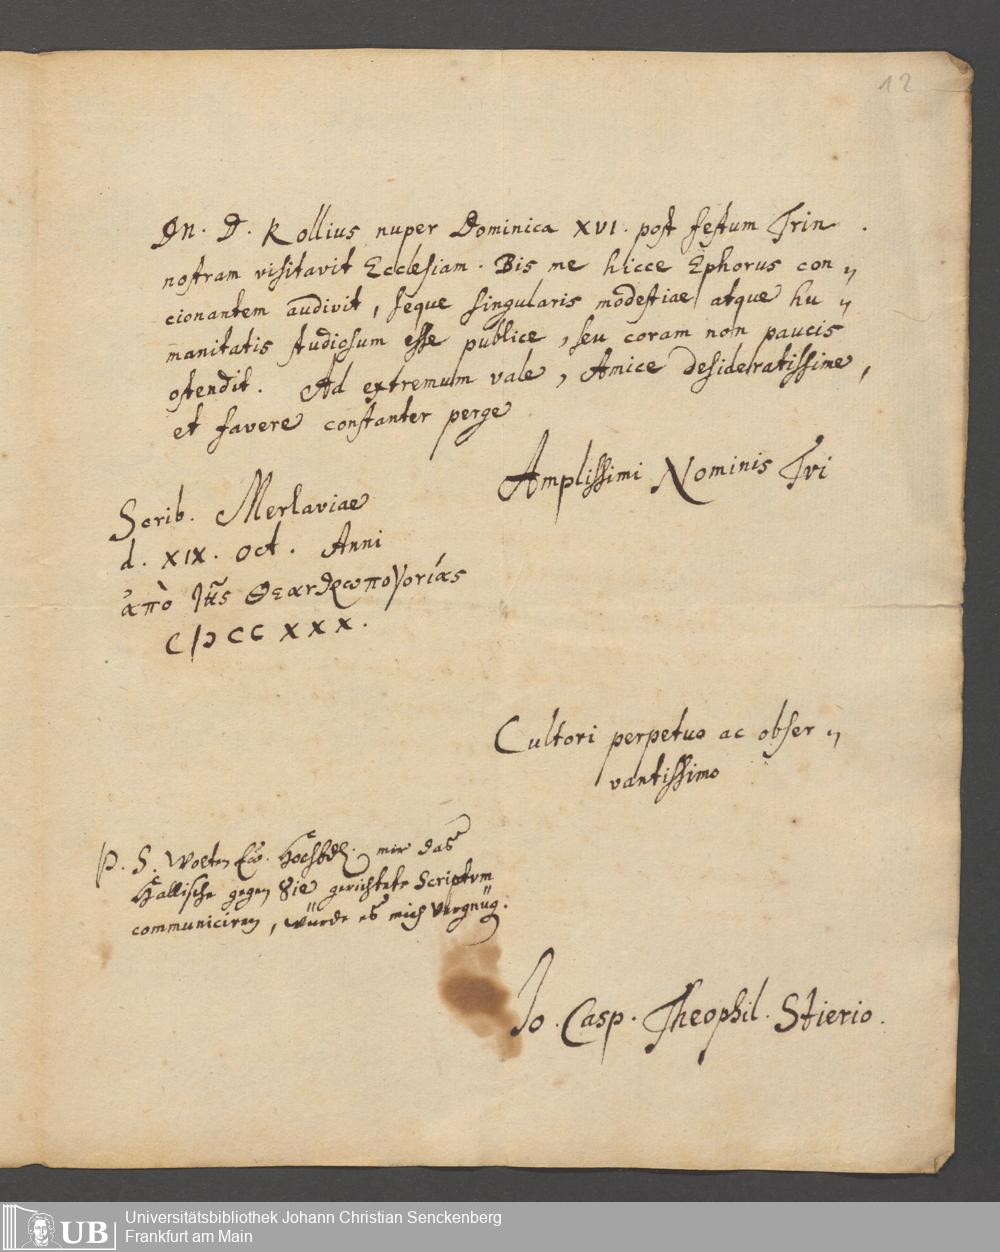 12
Dn. D. Kollius nuper Dominica XVI. post festum Trin.
nostram visitavit Ecclesiam. Bis me hicce Ephorus con„
cionantem audivit, seque singularis modestiae atque hu„
manitatis studiosum esse publice, seu coram non paucis
ostendit. Ad extremum vale, Amice desideratissime,
et favere constanter perge
Amplissimi Nominis Tui
Scrib. Merlaviae
d. XIX. Oct. Anni
ἀπὸ τῆς Θεανθρωπογονίας
CIƆCCXXX.
Cultori perpetuo ac obser„
vantissimo
P. S. Wolten Ew. HochEdl. mir das
Hällische gegen Sie gerichtete Scriptum
communiciren, würde es mich vergnüg.
Jo. Casp. Theophil. Stierio.
UB
Universitätsbibliothek Johann Christian Senckenberg
Frankfurt am Main